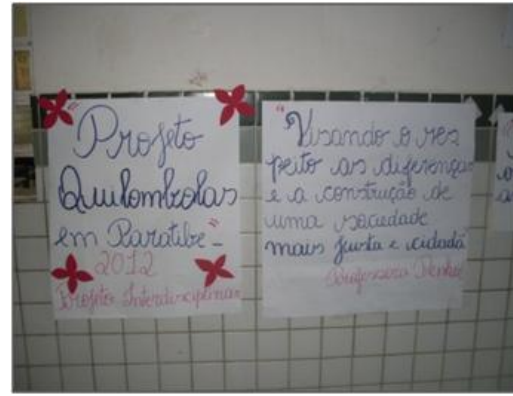 "Projeto
Quilombolas
em Paratibe"-
2012
Projeto Interdisciplinar
"Visando o res
peito as diferenças
e a construção de
uma sociedade
mais justa e cidadã
Professora Penha